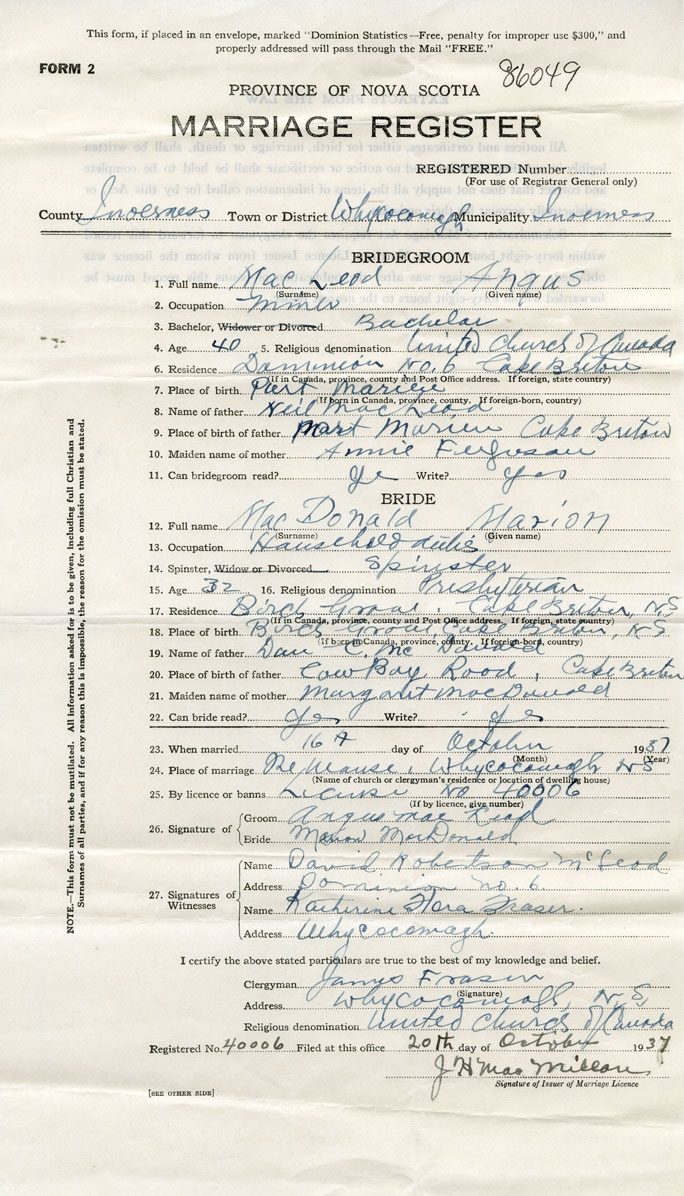 This form, if placed in an envelope, marked "Dominion Statistics—Free, penalty for improper use $300," and
properly addressed will pass through the Mail "FREE."
FORM 2
86049
PROVINCE OF NOVA SCOTIA
MARRIAGE REGISTER
REGISTERED Number
(For use of Registrar General only)
County Inverness Town or District Whycocomagh Municipality Inverness
BRIDEGROOM
1. Full name Mac Leod Angus
(Surname) (Given name)
2. Occupation Miner
3. Bachelor, Widower or Divorced Bachelor
4. Age 40 5. Religious denomination United Church of Canada
6. Residence Dominion No. 6 Cape Breton
(If in Canada, province, county and Post Office address. If foreign, state country)
7. Place of birth Port Morien
(If born in Canada, province, county. If foreign-born, country)
8. Name of father Neil MacLeod
9. Place of birth of father Port Morien Cape Breton
10. Maiden name of mother Annie Ferguson
11. Can bridegroom read? Yes Write? Yes
BRIDE
12. Full name Mac Donald Marion
(Surname) (Given name)
13. Occupation Household duties
14. Spinster, Widow or Divorced Spinster
15. Age 32 16. Religious denomination Presbyterian
17. Residence Birch Grove, Cape Breton, N.S
(If in Canada, province, county and Post Office address. If foreign, state country)
18. Place of birth Birch Grove, Cape Breton, N.S
(If born in Canada, province, county. If foreign-born, country)
19. Name of father Dan C. Mc Donald
20. Place of birth of father Cow Bay Road, Cape Breton
21. Maiden name of mother Margaret MacDonald
22. Can bride read? Yes Write? Yes
23. When married 16th day of October 1937
(Month) (Year)
24. Place of marriage The Manse, Whycocomagh N.S
(Name of church or clergyman's residence or location of dwelling house)
25. By licence or banns License No 40006
(If by licence, give number)
26. Signature of
Groom Angus Mac Leod
Bride Marion MacDonald
27. Signatures of Witnesses
Name David Robertson McLeod
Address Dominion No. 6
Name Katherine Flora Fraser
Address Whycocomagh
I certify the above stated particulars are true to the best of my knowledge and belief.
Clergyman James Fraser
(Signature)
Address Whycocomagh, N.S.
Religious denomination United Church of Canada
Registered No. 40006 Filed at this office 20th day of October 1937
J H MacMillan
Signature of Issuer of Marriage Licence
[SEE OTHER SIDE]
NOTE.—This form must not be mutilated. All information asked for is to be given, including full Christian and
Surnames of all parties, and if for any reason this is impossible, the reason for the omission must be stated.